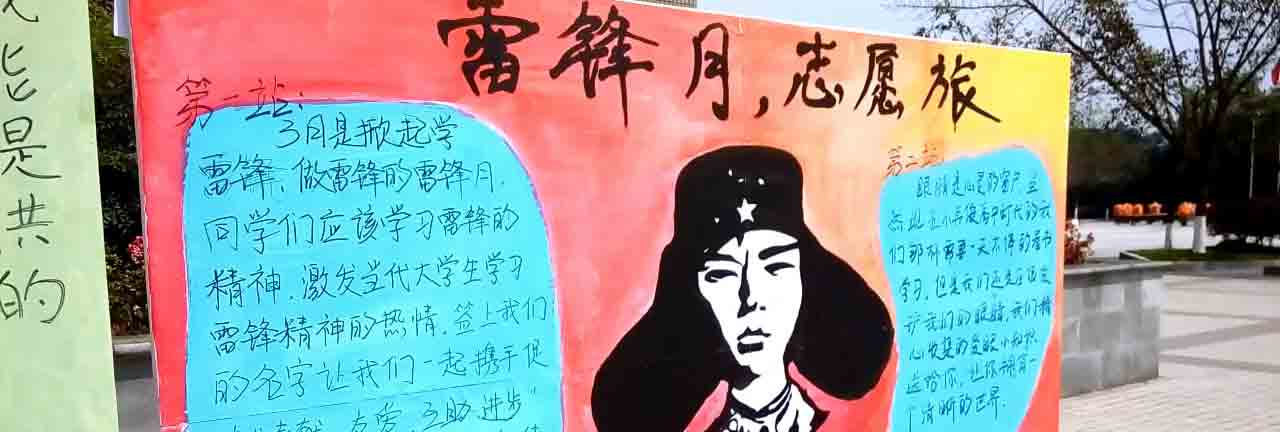 能是共的
雷锋月,志愿旅
第一站:
3月是掀起学
雷锋、做雷锋的雷锋月.
同学们应该学习雷锋的
精神.激发当代大学生学习
雷锋精神的热情.签上我们
的名字让我们一起携手促
奉献、友爱、互助、进步"
第二站:
眼睛是心灵的窗户.虽
然
们都需要一天不停的看书
学习.但是我们还是应该爱
护我们的眼睛.我们精
心收集的爱眼小知识
送给你,让你拥有一
个清晰的世界.